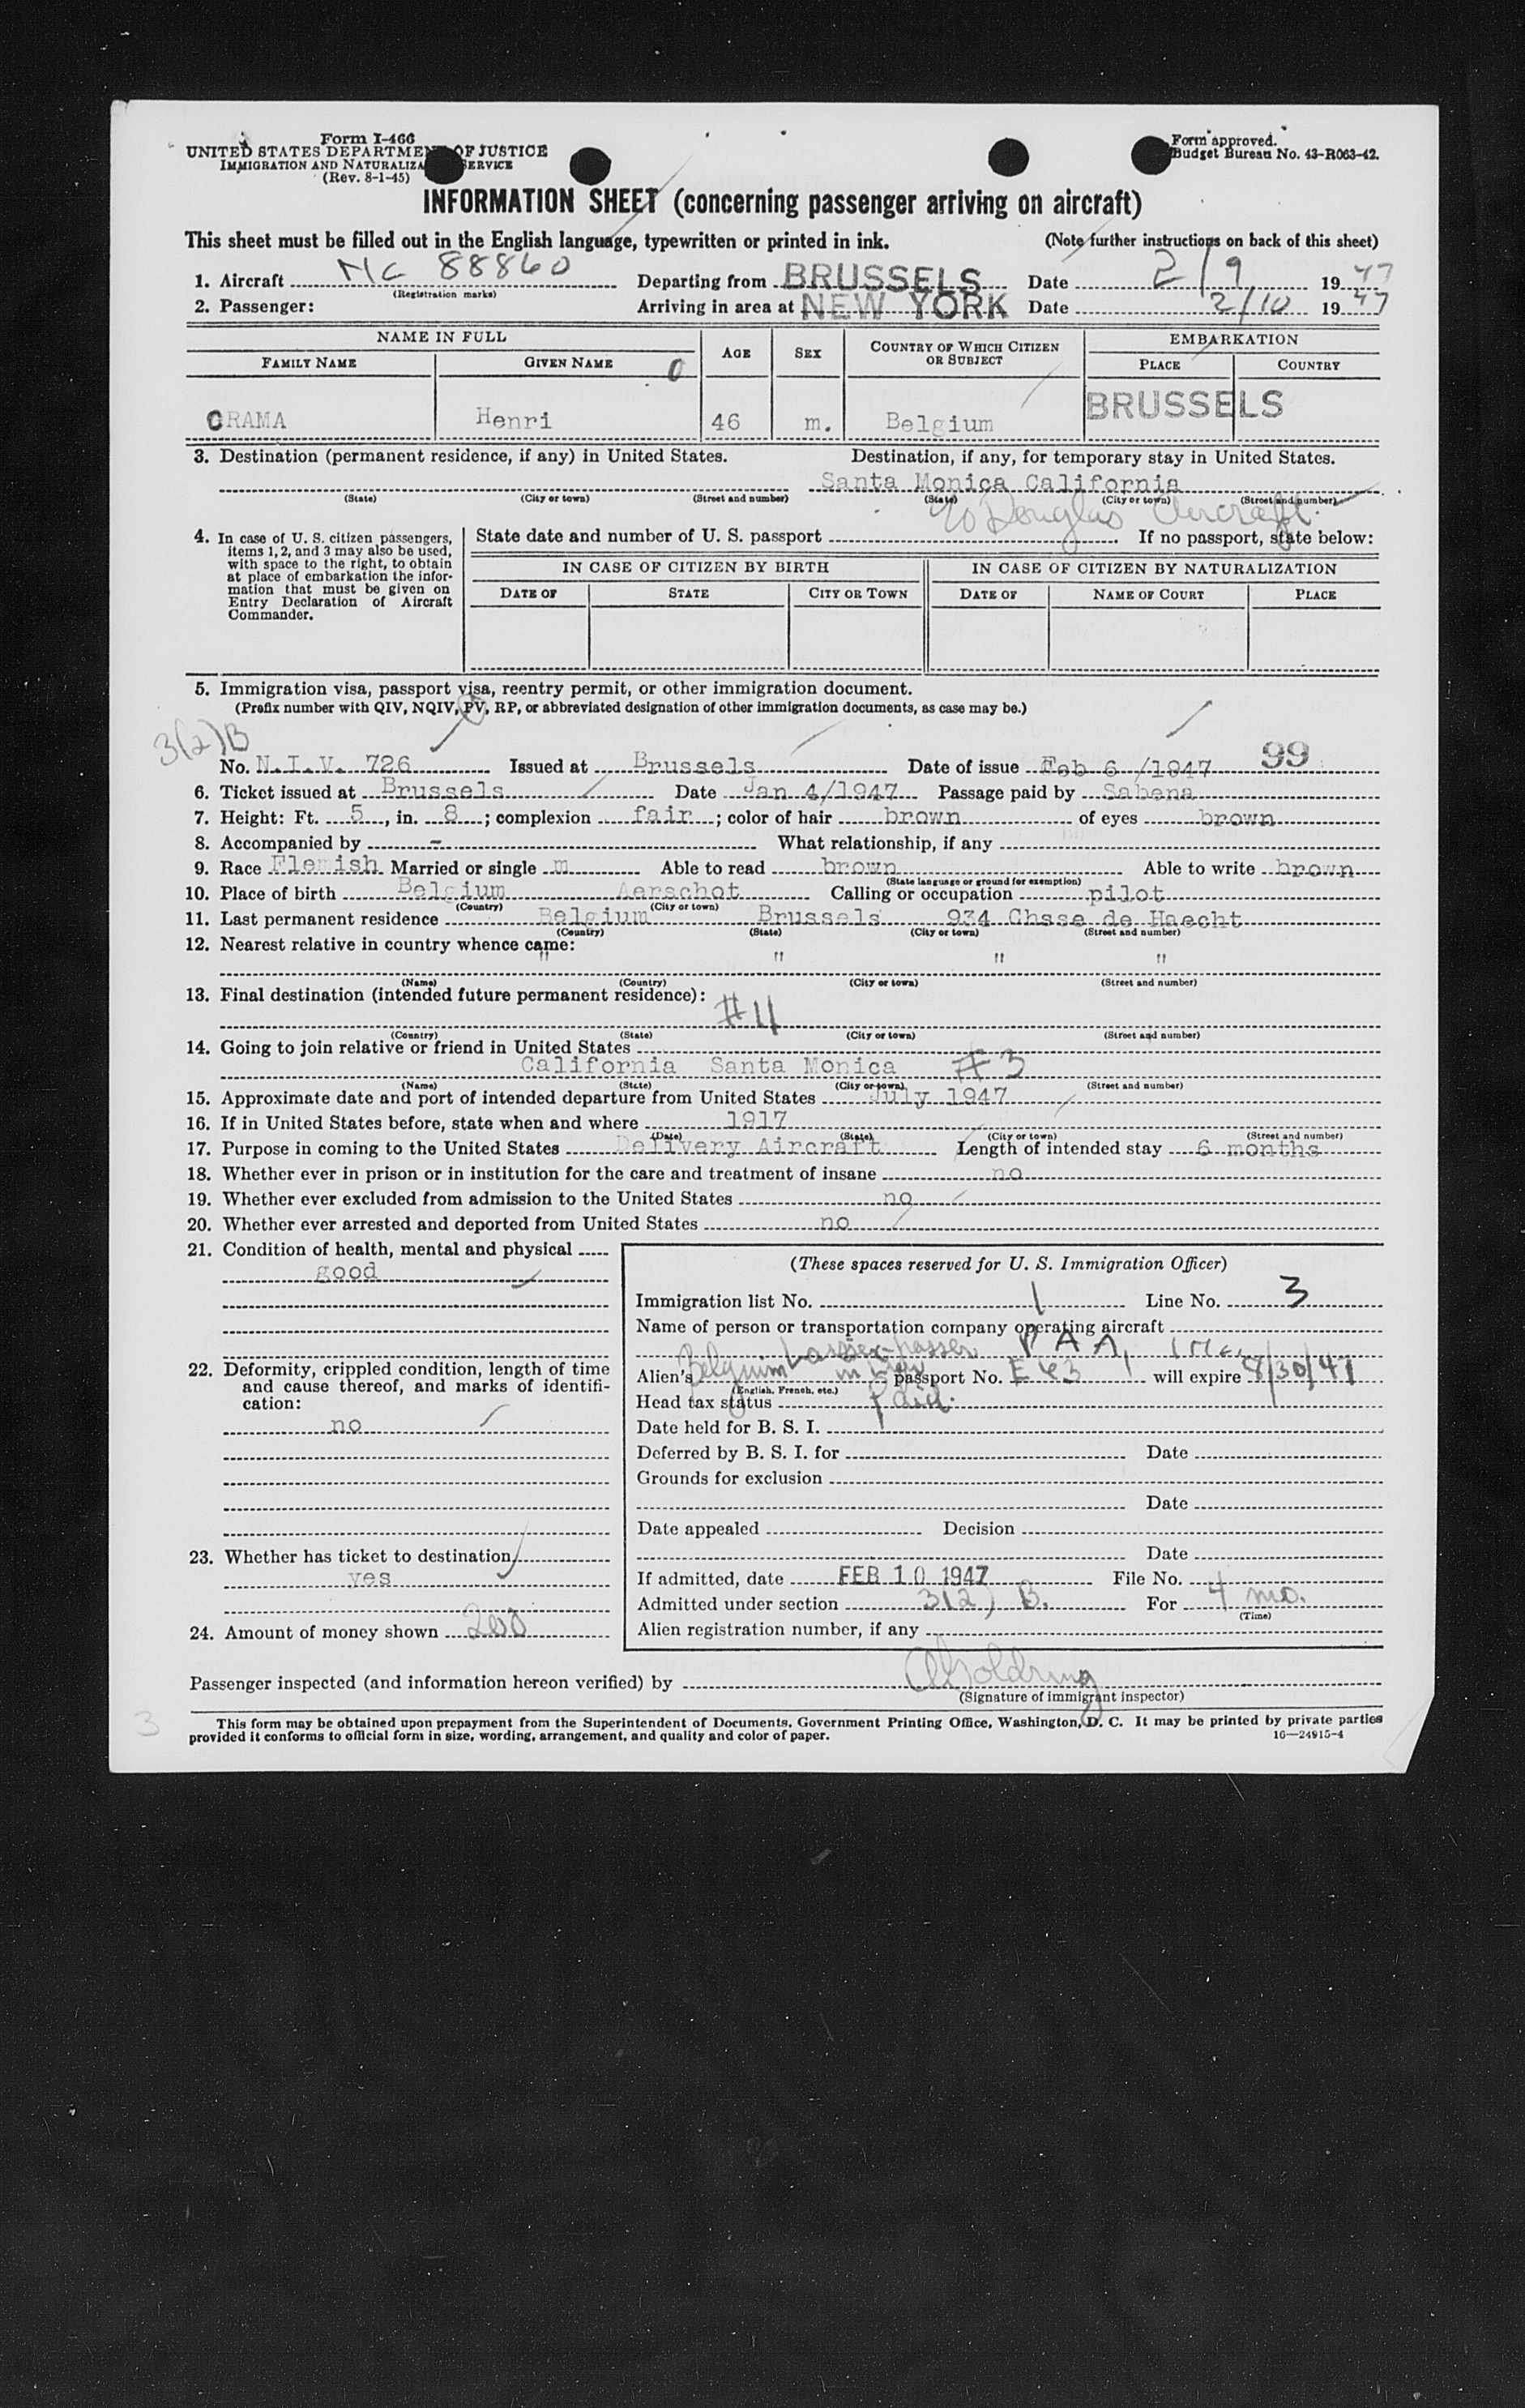 Form I-466
UNITED STATES DEPARTMENT OF JUSTICE
IMMIGRATION AND NATURALIZATION SERVICE
(Rev. 8-1-45)
Form approved.
Budget Bureau No. 43-R063-42.
INFORMATION SHEET (concerning passenger arriving on aircraft)
This sheet must be filled out in the English language, typewritten or printed in ink. (Note further instructions on back of this sheet)
1. Aircraft NC 88860 Departing from BRUSSELS Date 2/9 1947
(Registration marks)
2. Passenger: Arriving in area at NEW YORK Date 2/10 1947
NAME IN FULL AGE SEX COUNTRY OF WHICH CITIZEN OR SUBJECT EMBARKATION
FAMILY NAME GIVEN NAME PLACE COUNTRY
0
ORAMA Henri 46 m. Belgium BRUSSELS
3. Destination (permanent residence, if any) in United States. Destination, if any, for temporary stay in United States.
Santa Monica California
(State) (City or town) (Street and number) (State) (City or town) (Street and number)
c/o Douglas Aircraft.
4. In case of U. S. citizen passengers, items 1, 2, and 3 may also be used, with space to the right, to obtain at place of embarkation the information that must be given on Entry Declaration of Aircraft Commander.
State date and number of U. S. passport If no passport, state below:
IN CASE OF CITIZEN BY BIRTH IN CASE OF CITIZEN BY NATURALIZATION
DATE OF STATE CITY OR TOWN DATE OF NAME OF COURT PLACE
5. Immigration visa, passport visa, reentry permit, or other immigration document.
(Prefix number with QIV, NQIV, PV, RP, or abbreviated designation of other immigration documents, as case may be.)
3(2)B
99
No. N.I.V. 726 Issued at Brussels Date of issue Feb 6 /1947
6. Ticket issued at Brussels Date Jan 4/1947 Passage paid by Sabena
7. Height: Ft. 5, in. 8; complexion fair; color of hair brown of eyes brown
8. Accompanied by - What relationship, if any
9. Race Flemish Married or single m Able to read brown Able to write brown
(State language or ground for exemption)
10. Place of birth Belgium Aerschot Calling or occupation pilot
(Country) (City or town)
11. Last permanent residence Belgium Brussels 934 Chsse de Haecht
(Country) (State) (City or town) (Street and number)
12. Nearest relative in country whence came:
" " " "
(Name) (Country) (City or town) (Street and number)
13. Final destination (intended future permanent residence):
#4
(Country) (State) (City or town) (Street and number)
14. Going to join relative or friend in United States
California Santa Monica #3
(Name) (State) (City or town) (Street and number)
15. Approximate date and port of intended departure from United States July 1947
16. If in United States before, state when and where 1917
(Date) (State) (City or town) (Street and number)
17. Purpose in coming to the United States Delivery Aircraft Length of intended stay 6 months
18. Whether ever in prison or in institution for the care and treatment of insane no
19. Whether ever excluded from admission to the United States no
20. Whether ever arrested and deported from United States no
21. Condition of health, mental and physical
good
22. Deformity, crippled condition, length of time and cause thereof, and marks of identification:
no
23. Whether has ticket to destination
yes
24. Amount of money shown 200
(These spaces reserved for U. S. Immigration Officer)
Immigration list No. 1 Line No. 3
Name of person or transportation company operating aircraft
P A A, Inc.
Alien's Belgium passport No. E 43 will expire 9/30/47
(English, French, etc.)
Head tax status Paid.
Date held for B. S. I.
Deferred by B. S. I. for Date
Grounds for exclusion
Date
Date appealed Decision
Date
If admitted, date FEB 10 1947 File No.
Admitted under section 3(2) B. For 4 mo.
(Time)
Alien registration number, if any
Passenger inspected (and information hereon verified) by Goldring
(Signature of immigrant inspector)
3
This form may be obtained upon prepayment from the Superintendent of Documents, Government Printing Office, Washington, D. C. It may be printed by private parties
provided it conforms to official form in size, wording, arrangement, and quality and color of paper. 16—24915-4